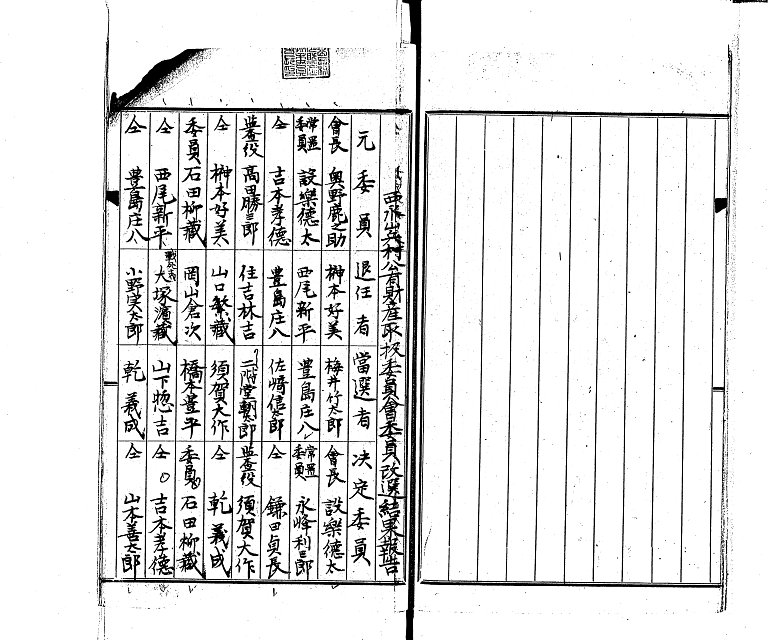 西水共村公有財産取扱委員會委員改選結果報告
元委員 退任者 當選者 决定委員
會長 奥野鹿之助 榊本好美 梅井竹太郎 會長 設樂德太
常置委員 設樂德太 西尾新平 豊島庄八 常置委員 永峰利三郎
仝 吉本孝德 豊島庄八 佐﨑信太郎 仝 鎌田貞長
監査役 高田勝三郎 住吉林吉 二階堂朝太郎 監査役 須賀大作
仝 榊本好美 山口繁藏 須賀大作 仝 乾義成
委員 石田柳藏 岡山倉次 橋本豊平 委員 石田柳藏
仝 西尾新平 大塚濱藏 山下惣吉 仝 吉本孝德
仝 豊島庄八 小野実太郎 乾義成 仝 山本善太郎